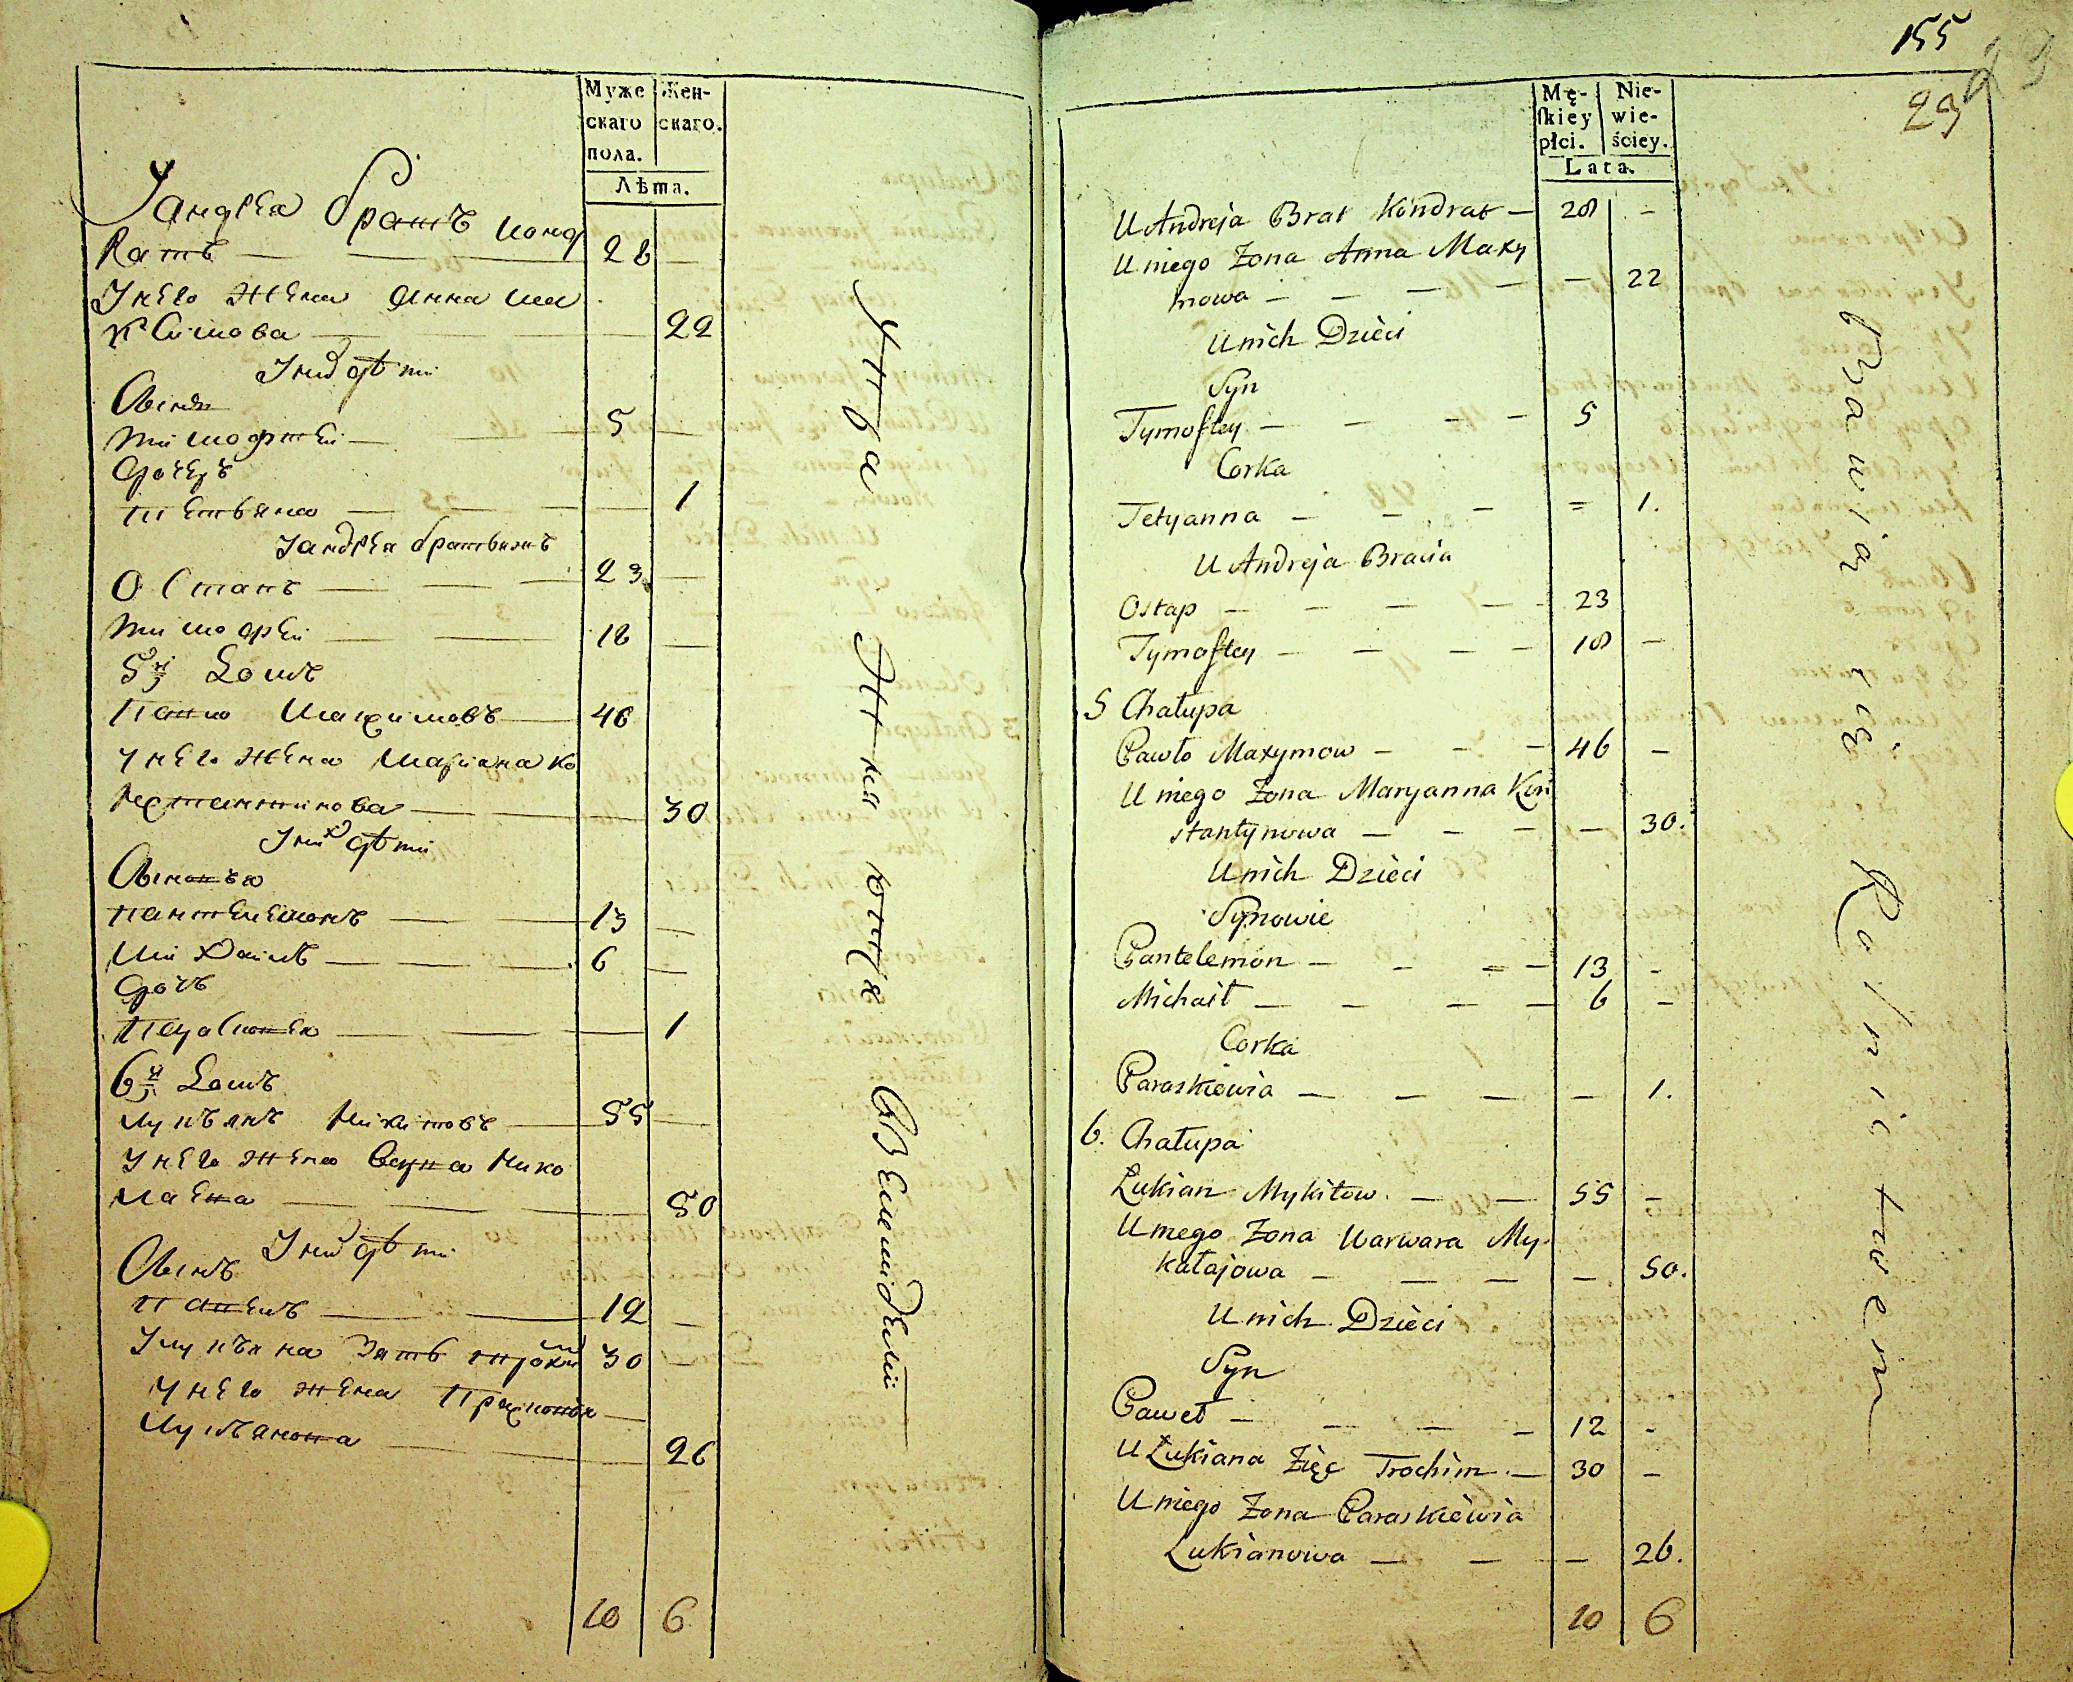 Муже
скаго
пола.
Жен-
скаго.
Лѣта.
У андрея братъ конд
ратъ — 28 —
У него жена анна ма
ксимова — 22
У них дѣти
Сынъ
тимофтей — 5 —
дочеръ
тетьяна — 1
У андрея братья
Остапъ — 23 —
тимофей — 18 —
5й домъ
Павло Махимовъ — 46
У него жена Марiана ко
нстантинова — 30
У них дѣти
Сыновъя
пантелемонъ — 13 —
Михаилъ — 6 —
дочъ
параскевея — 1
6й домъ
лукъянъ Микитовъ — 55 —
У него жена Варвара Нико
лаева — 50
У них дѣти
Сынъ
павелъ — 12 —
У лукъяна зять трохим 30 —
У него жена
лукъянова — 26
10 6
живутъ
земледелiи
155
29
Mę-
ſkiey
płci.
Nie-
wie-
ściey.
Lata.
U Andreja Brat Kondrat — 28 -
U niego Zona Anna Maxy
mowa - — — — — 22
U nich Dzieci
Syn
Tymoftey - — - - 5
Corka
Tetyanna — - - = 1.
U Andreja Bracia
Ostap — - — - 23
Tymoftey - — - - 18 —
5 Chałupa
Pawło Maxymow - - - 46 —
U niego Zona Maryanna Kon
stantynowa — - — — 30.
U nich Dzieci
Synowie
Pantelemon — - = — 13 -
Michaił — — — — 6 —
Corka
Paraskiewia — — — — 1.
6. Chałupa
Łukian Mykitow. — — 55 —
U niego Zona Warwara My-
kałajowa — — — — 50.
U nich Dzieci
Syn
Paweł - — — — 12 -
U Łukiana Zięć Trochim. — 30 —
U niego Zona Paraskiewia
Łukianowa — — — 26.
10 6
Bawią się Rolnictwem